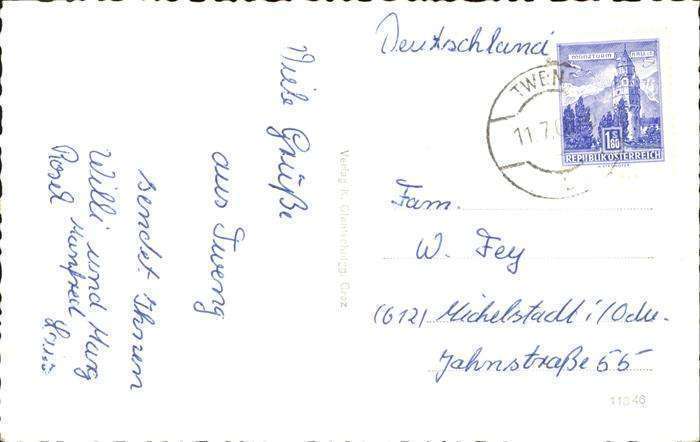 Viele Grüße
aus Tweng
sendet Ihnen
Willi und
Rosel Manfred
Verlag H. Graz
Deutschland
TWEN
11.7.
MÜNZTURM HALL i.T.
1.80
REPUBLIK ÖSTERREICH
Fam.
W. Fey
(612) Michelstadt i/Odw.
Jahnstraße 55
11846